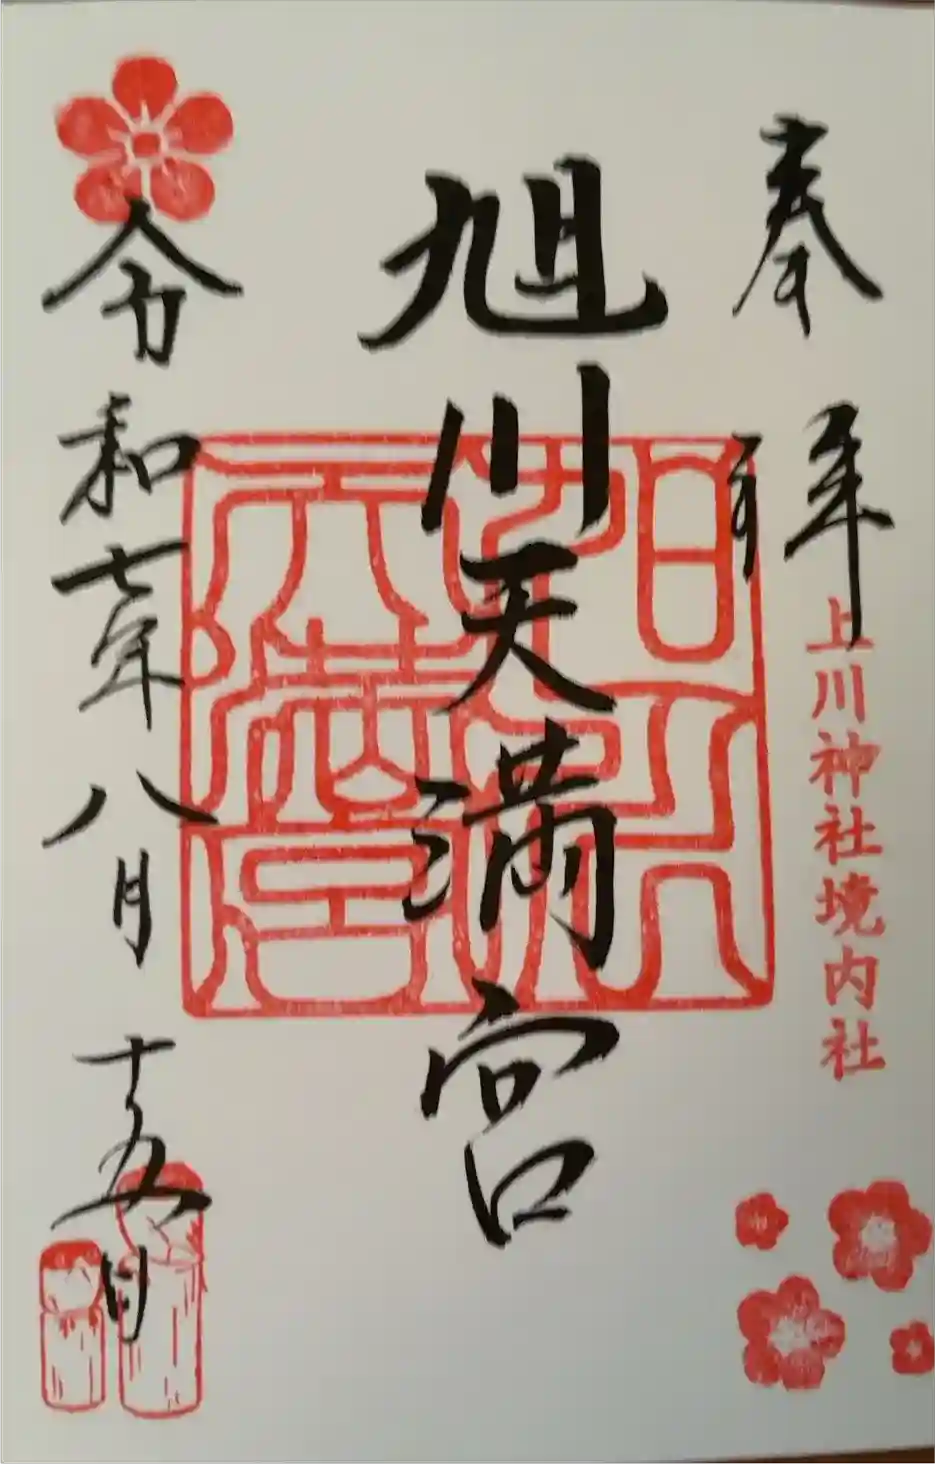 奉拝
上川神社境内社
旭川天満宮
旭川天満宮
令和七年八月十五日